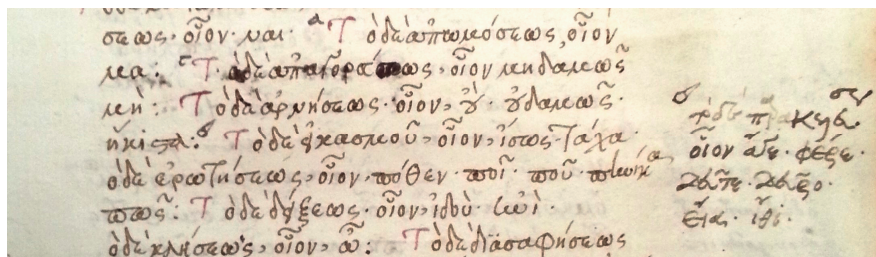 σεως· οἷον· ναί· Τὸ δὲ ἀπωμόσεως, οἷον
μα: Τὸ δὲ ἀπαγορεύσεως, οἷον μηδαμῶς
μή: Τὸ δὲ ἀρνήσεως· οἷον, οὐ· οὐδαμῶς·
ἥκιστα: Τὸ δὲ εἰκασμοῦ, οἷον, ἴσως· τάχα·
ὁ δὲ ἐρωτήσεως, οἷον, πόθεν· ποῖ· ποῦ· πηνίκα
πῶς: Τὸ δὲ δείξεως· οἷον, ἰδού·
ὁ δὲ κλήσεως, οἷον, ὦ: Τὸ δὲ διασαφήσεως
οἷον ἄγε· φέρε·
δεῦτε· δεῦρο·
εἶα· ἴθι·